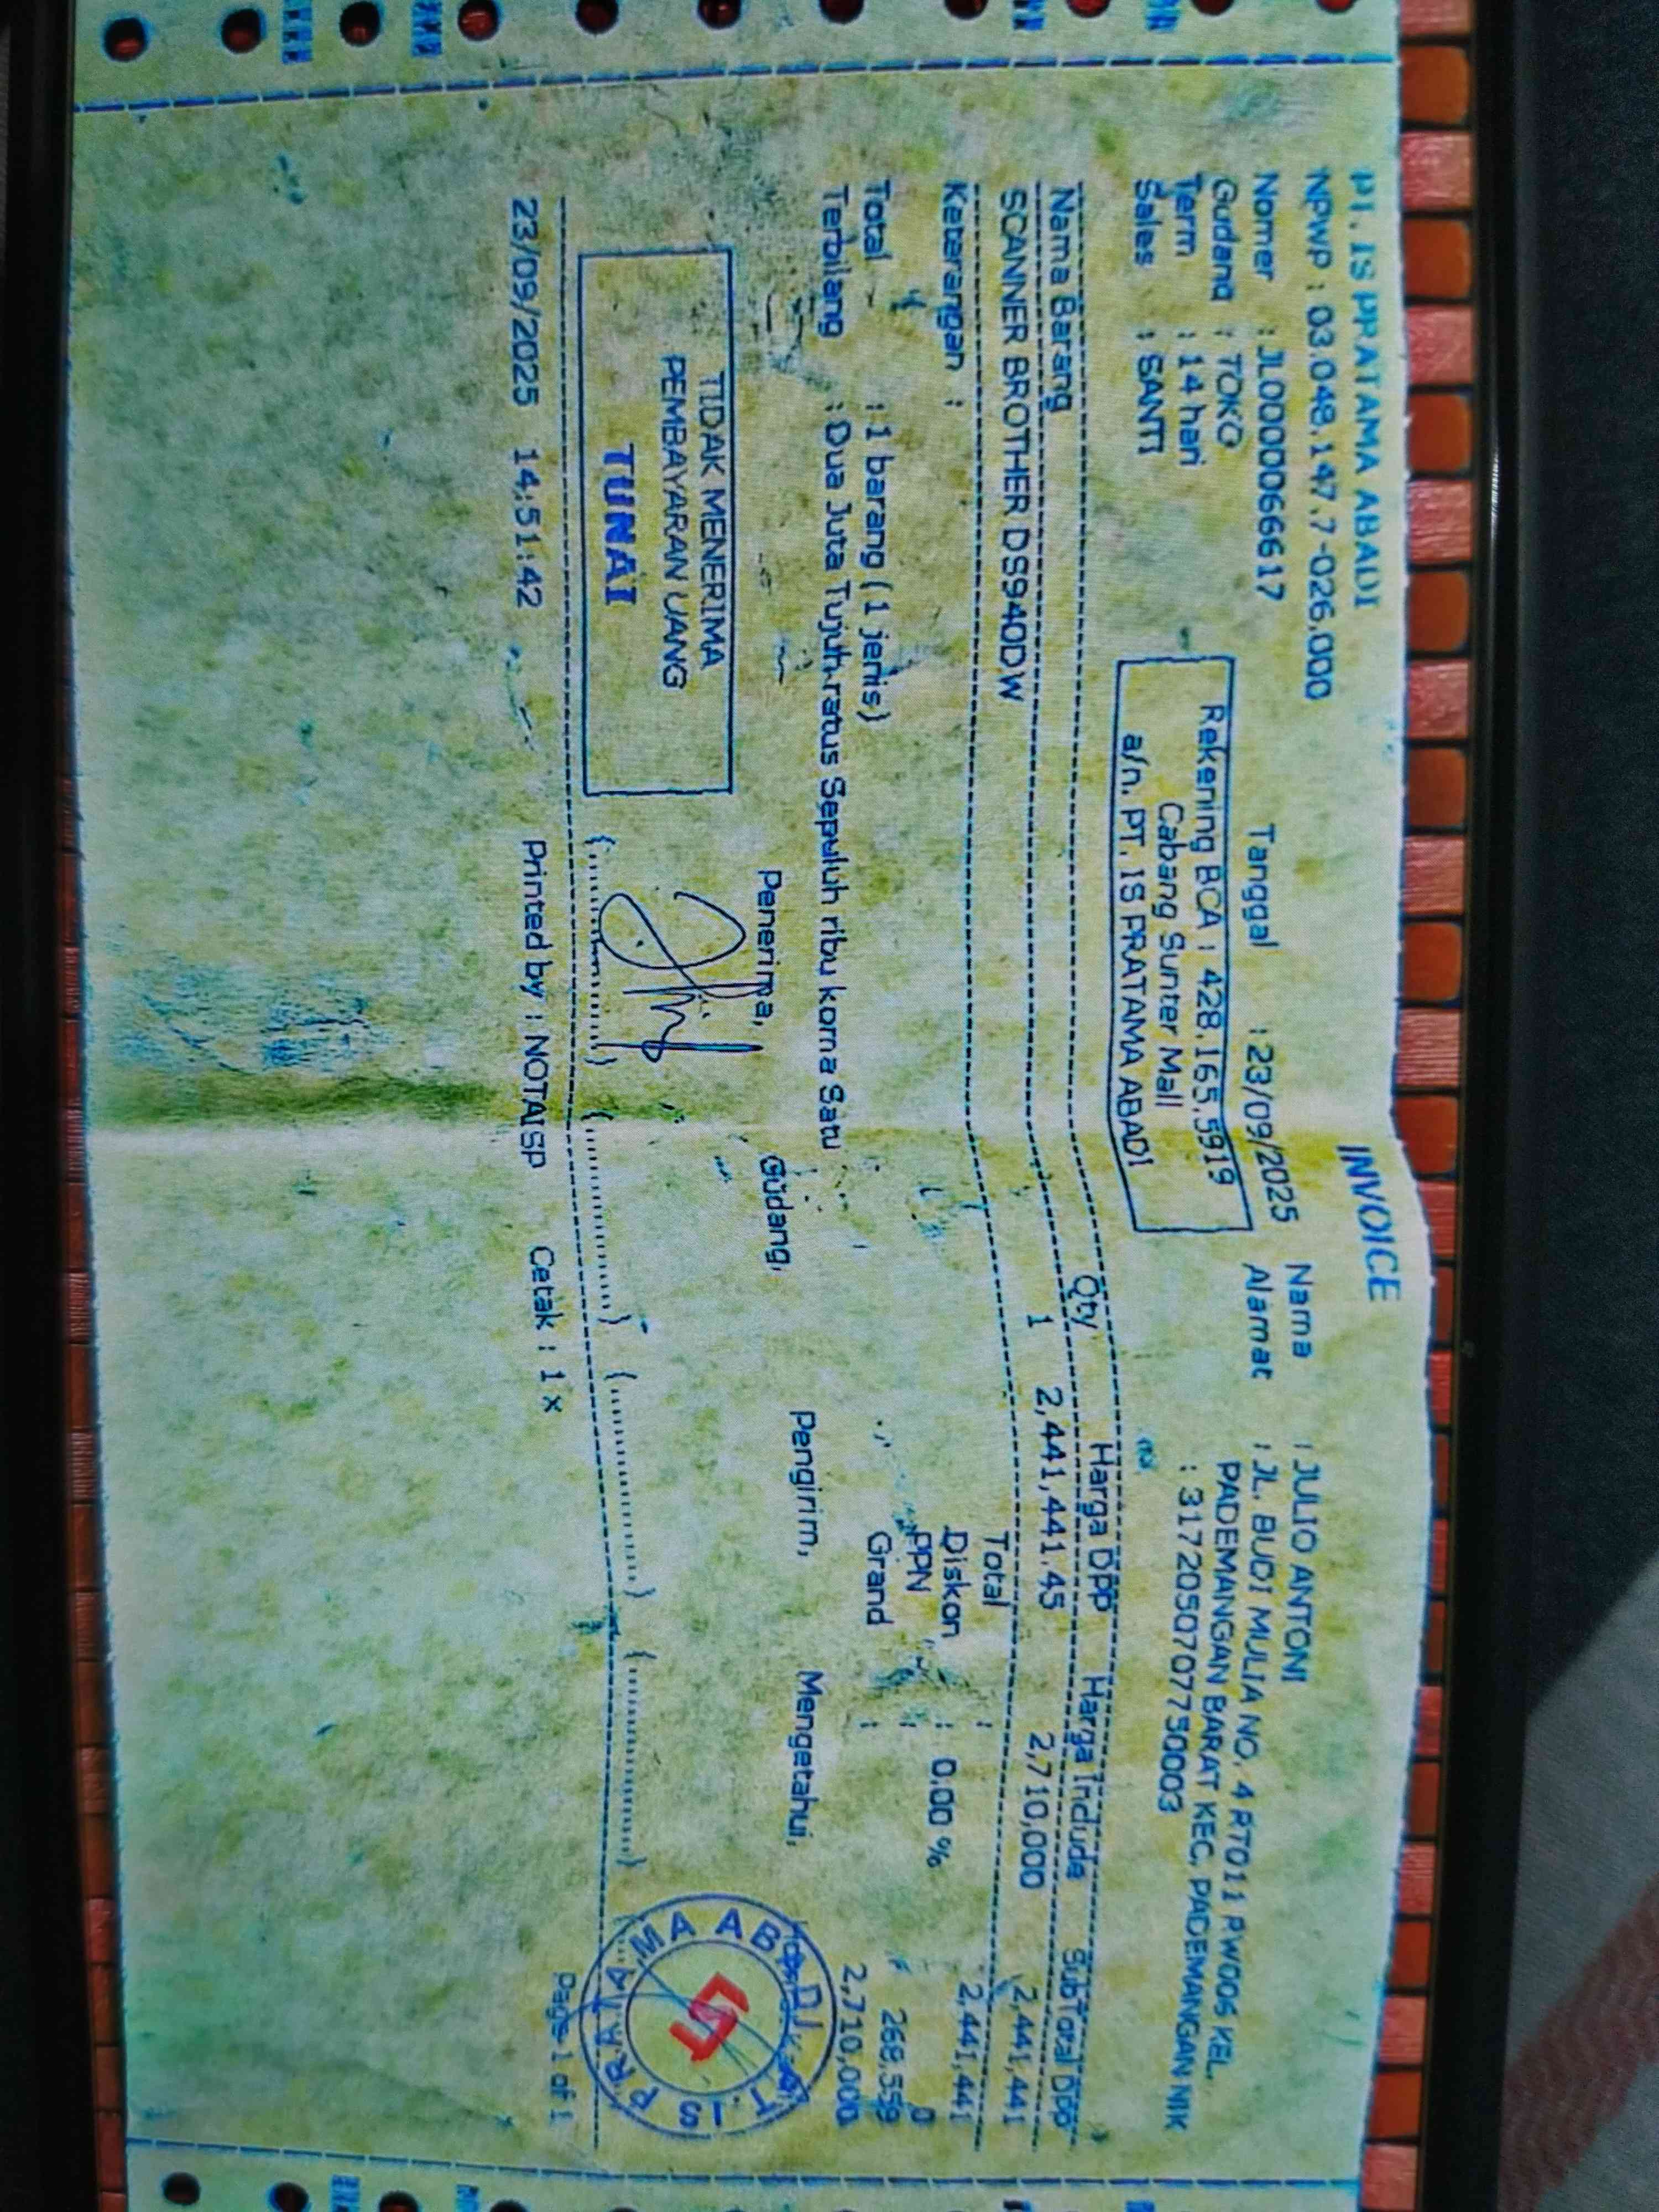 PT. IS PRATAMA ABADI
INVOICE
NPWP : 03.048.147.7-026.000
Nomer : JL0000066617
Tanggal : 23/09/2025
Nama : JULIO ANTONI
Gudang : TOKO
Alamat : JL. BUDI MULIA NO. 4 RT011 RW006 KEL.
PADEMANGAN BARAT KEC. PADEMANGAN NIK
: 3172050707750003
Term : 14 hari
Sales : SANTI
Rekening BCA : 428.165.5919
Cabang Sunter Mall
a/n. PT. IS PRATAMA ABADI
Nama Barang Qty Harga DPP Harga Include SubTotal DPP
SCANNER BROTHER DS940DW 1 2,441,441.45 2,710,000 2,441,441
Keterangan :
Total : 2,441,441
Diskon : 0.00 % 0
PPN : 268,559
Grand : 2,710,000
Total : 1 barang (1 jenis)
Terbilang : Dua Juta Tujuh ratus Sepuluh ribu koma Satu
Penerima, Gudang, Pengirim, Mengetahui,
TIDAK MENERIMA
PEMBAYARAN UANG
TUNAI
(............) (............) (............) (............)
PT. IS PRATAMA ABADI
23/09/2025 14:51:42 Printed by : NOTAISP Cetak : 1 x Page 1 of 1